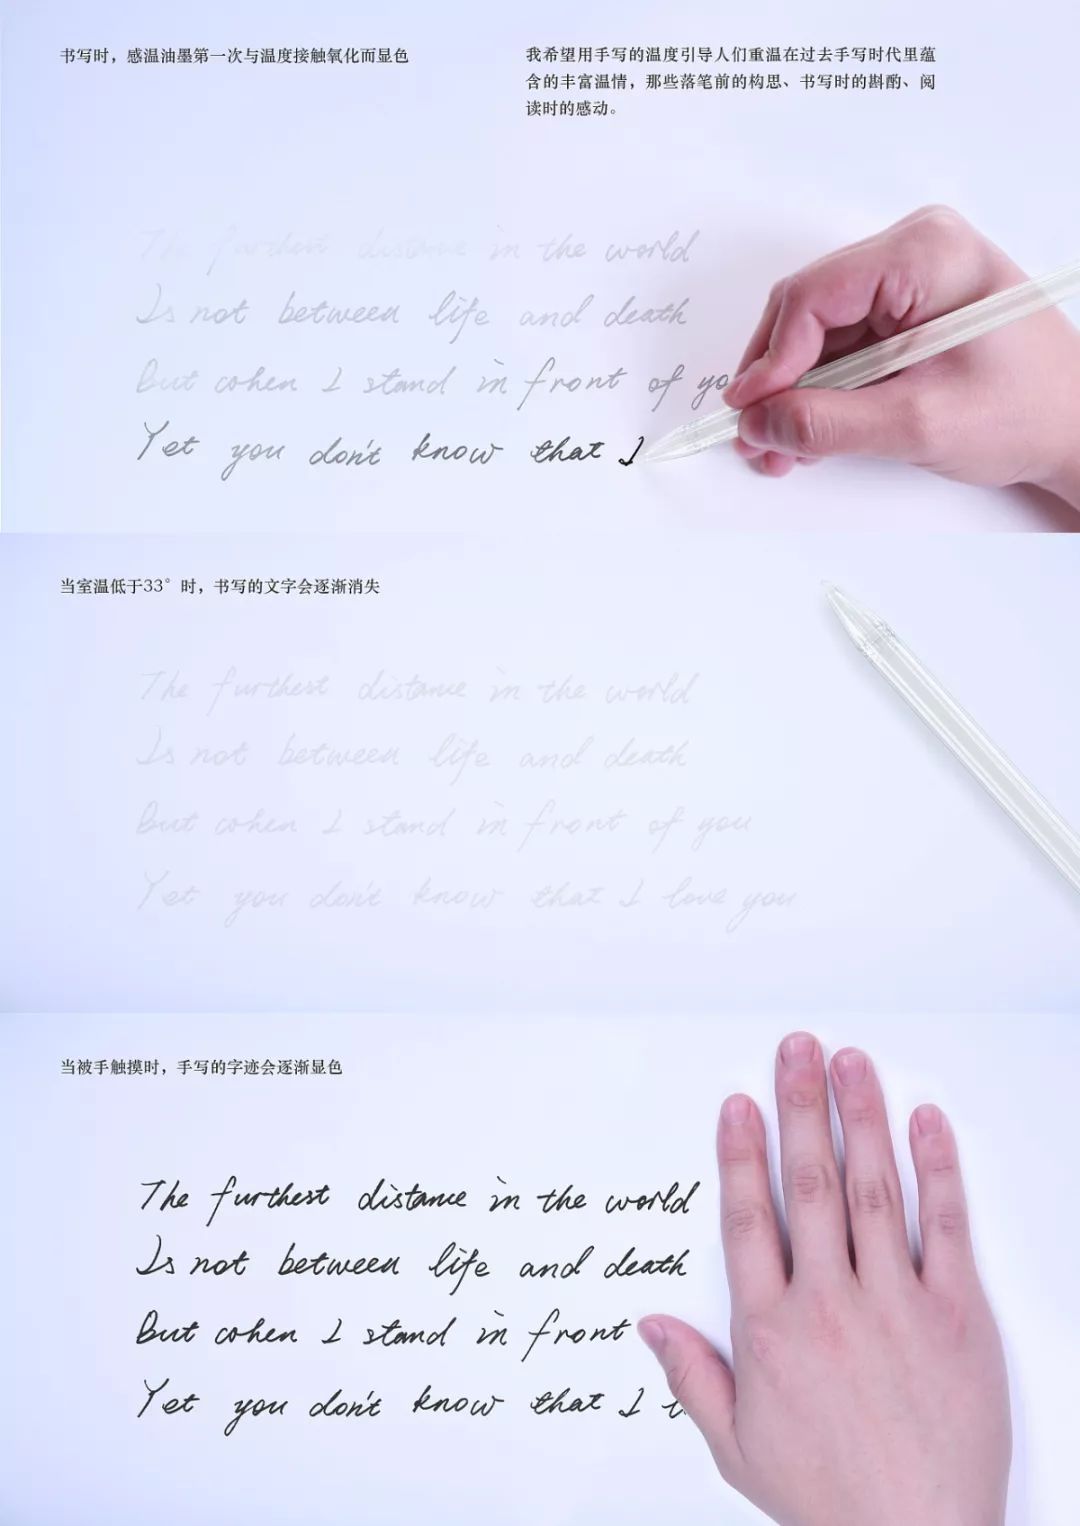 书写时，感温油墨第一次与温度接触氧化而显色
我希望用手写的温度引导人们重温在过去手写时代里蕴
含的丰富温情，那些落笔前的构思、书写时的斟酌、阅
读时的感动。
The furthest distance in the world
Is not between life and death
But when I stand in front of yo
Yet you don't know that I
当室温低于33°时，书写的文字会逐渐消失
The furthest distance in the world
Is not between life and death
But when I stand in front of you
Yet you don't know that I love you
当被手触摸时，手写的字迹会逐渐显色
The furthest distance in the world
Is not between life and death
But when I stand in front
Yet you don't know that I